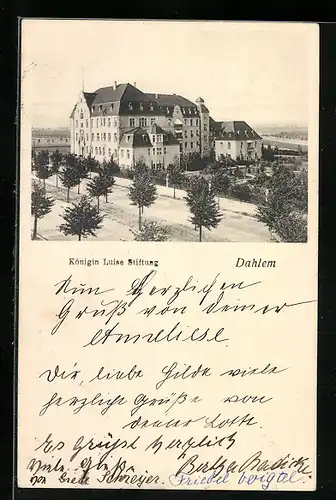 Königin Luise Stiftung Dahlem
Nun Herzlichen
Gruß von deiner
Anneliese.
Dir, liebe Hilde viele
herzliche Grüße von
deiner Lotte.
Es Grüßt herzlich
Viele Grüße Bertha
Schreyer. Friedel Voigtel